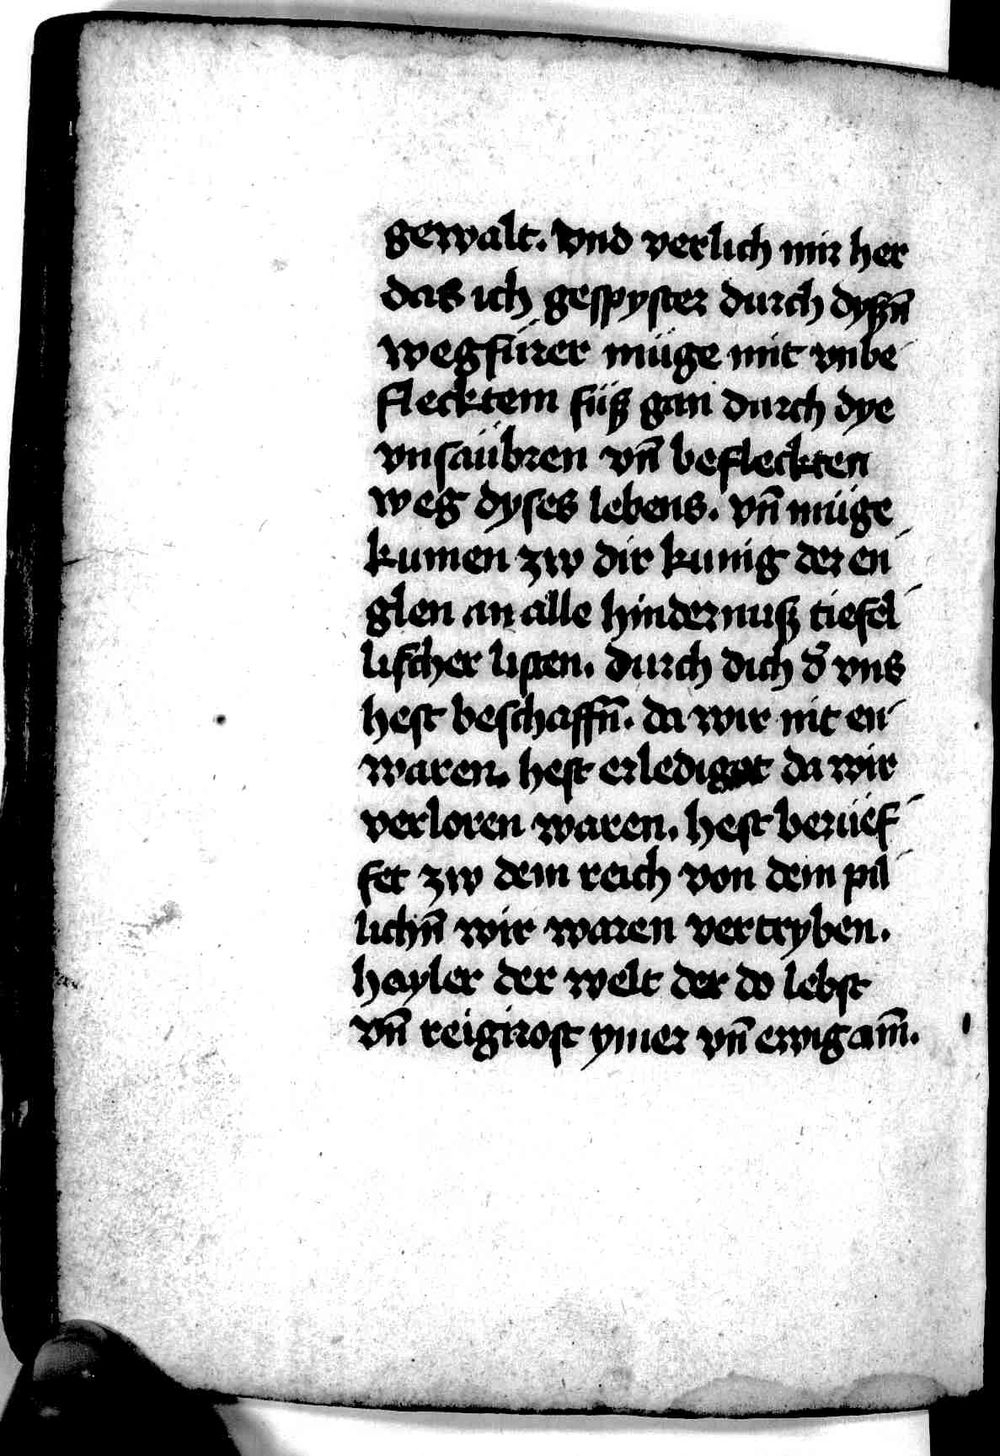 gewalt. vnd verlich mir her
das ich gespyster durch dyßn̄
wegfürer müge mit vnbe
flecktem füß gan durch dye
vnsaübren vn̄ befleckten
weg dyses lebens. vn̄ müge
kumen zw dir kunig der en
glen an alle hindernuß tiefel
lischer listen. durch dich d̄ vns
hest beschaffn̄. da wir nit en
waren. hest erlediget da wir
verloren waren. hest berüef
fet zw dem reich von dem pil
lichn̄ wir waren vertryben.
hayler der welt der do lebst
vn̄ reigirost ymer vn̄ ewig am̄.